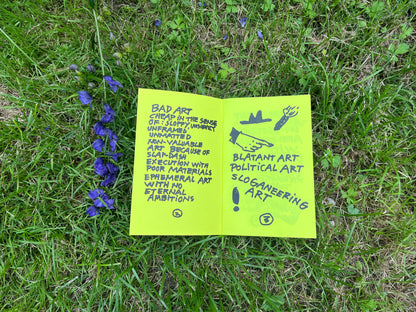 BAD ART
CHEAP IN THE SENSE
OF: SLOPPY, UNSWEPT
UNFRAMED,
UNMATTED
NON-VALUABLE
ART BECAUSE OF
SLAP-DASH
EXECUTION WITH
POOR MATERIALS
EPHEMERAL ART
WITH NO
ETERNAL
AMBITIONS
2
BLATANT ART
POLITICAL ART
SLOGANEERING
ART
!
3